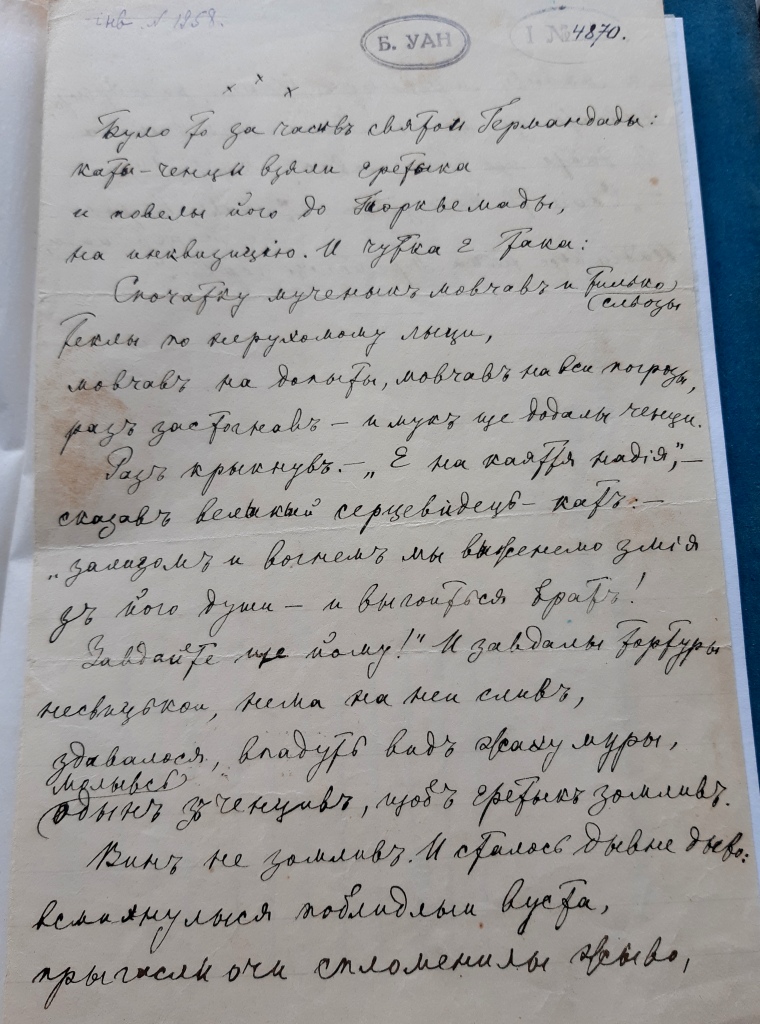 інв. № 1258.
Б. УАН
І № 4870.
x x x
Було то за часивъ святои Германдады:
каты-ченци взялы еретыка
и повелы його до Торквемады,
на инквизицію. И чутка е така:
Спочатку мученыкъ мовчавъ и тилько
(сльозы
теклы по нерухомому лыци,
мовчавъ на допыты, мовчавъ на вси погрозы,
разъ застогнавъ – и мукъ ще додалы ченци.
Разъ крыкнувъ. – „Е на каяття надія", –
сказавъ велыкый серцевидець – катъ: –
„зализомъ и вогнемъ мы выженемо змія
зъ його души – и выгоиться братъ!
Завдайте ще йому!" И завдалы тортуры
несвицькои, нема на неи сливъ,
здавалося, впадуть видъ жаху муры,
молывсь
одынъ зъ ченцивъ, щобъ еретыкъ зомливъ.
Винъ не зомливъ. И сталось дывне дыво:
всмихнулыся поблидлыи вуста,
прыгасли очи спломенилы жыво,